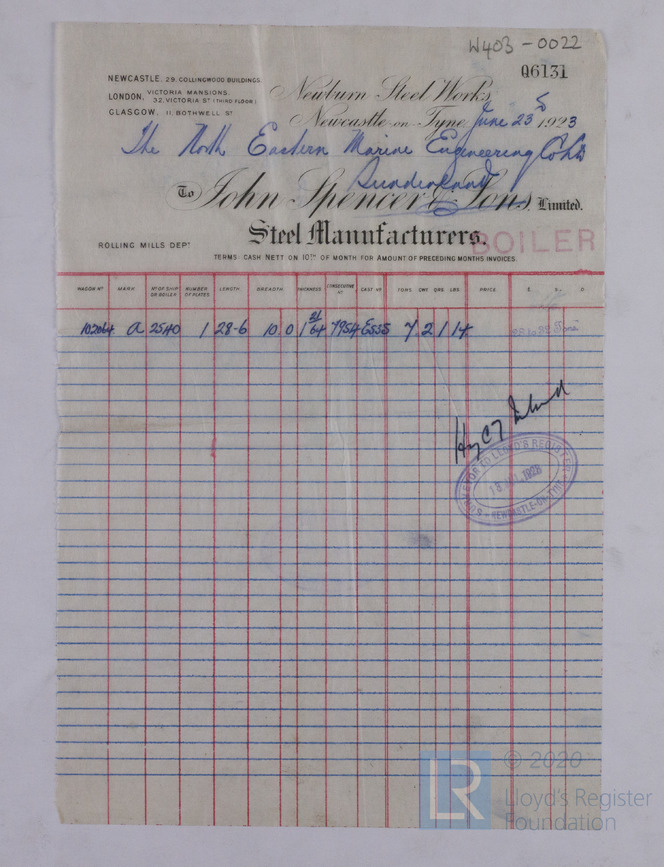 W403-0022
Q6131
NEWCASTLE, 29, COLLINGWOOD BUILDINGS.
LONDON, VICTORIA MANSIONS,
32, VICTORIA ST (THIRD FLOOR)
GLASGOW, 11, BOTHWELL ST
Newburn Steel Works
Newcastle-on-Tyne, June 23 1923
The North Eastern Marine Engineering Co Ld
Sunderland
To John Spencer & Sons, Limited.
Steel Manufacturers.
BOILER
ROLLING MILLS DEPT
TERMS: CASH NETT ON 10TH OF MONTH FOR AMOUNT OF PRECEDING MONTHS INVOICES
WAGON NO MARK NO OF SHIP OR BOILER NUMBER OF PLATES LENGTH BREADTH THICKNESS CONSECUTIVE NO CAST NO TONS. CWT. QRS. LBS. PRICE. £. S. D.
102064 A 2540 1 28-6 10 0 1 31/64 7954 E535 7 2 1 14
SURVEYOR TO LLOYD'S REGISTER
NEWCASTLE-ON-TYNE
LR
© 2020
Lloyd's Register
Foundation